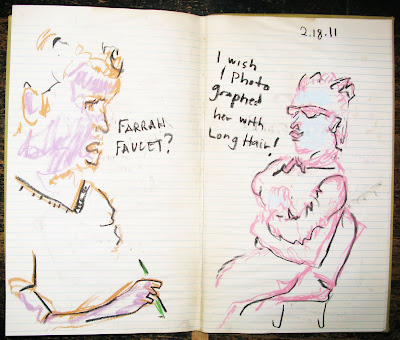 FARRAH
FAUCET?
2.18.11
I wish
I Photo
graphed
her with
Long Hair!